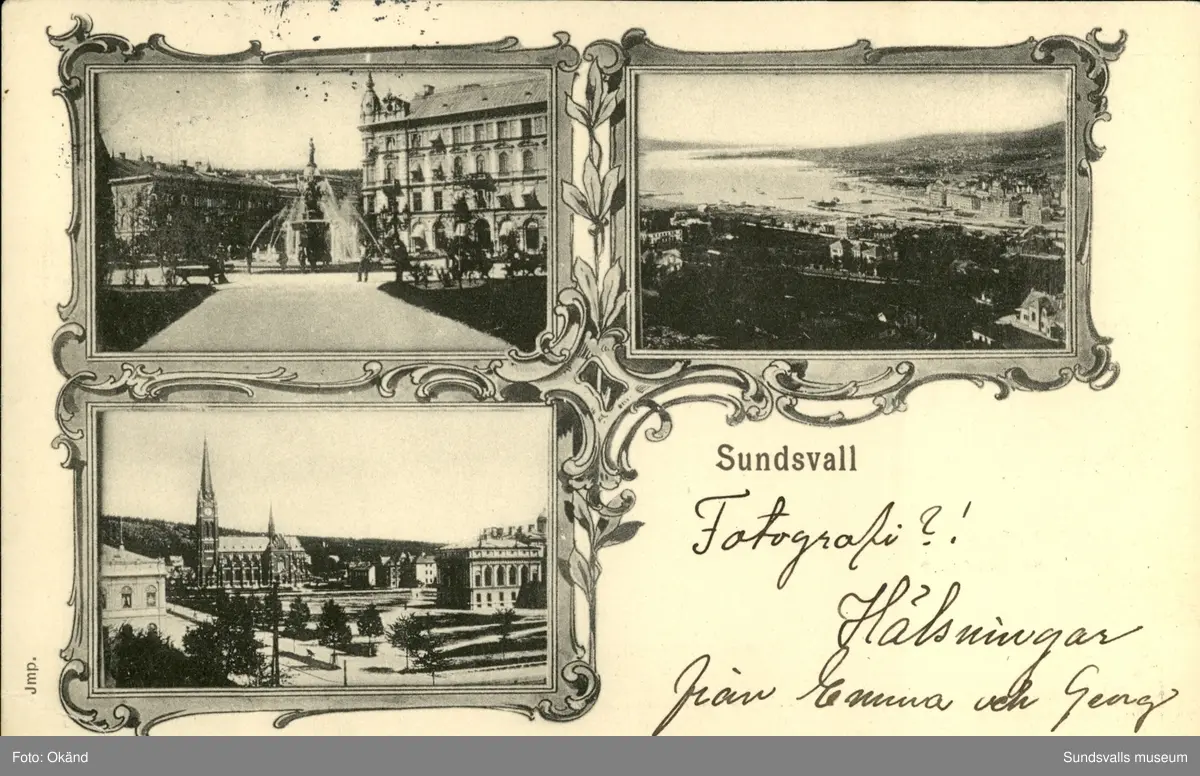 Sundsvall
Fotografi?!
Hälsningar
från Emma och Georg
Jmp.
Foto: Okänd
Sundsvalls museum